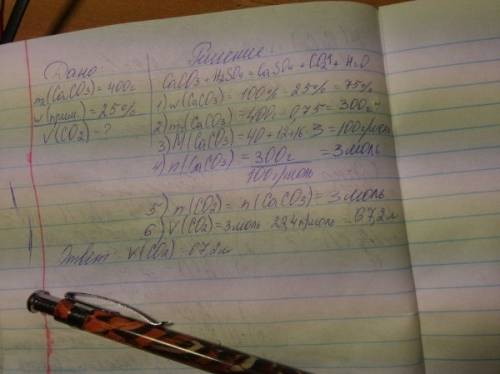 Дано: Решение:
m(CaCO3) = 400г
w(прим.) = 25%
V(CO2) = ?
CaCO3 + H2SO4 = CaSO4 + CO2↑ + H2O
1) w(CaCO3) = 100% - 25% = 75%
2) m(CaCO3) = 400г · 0,75 = 300г
3) M(CaCO3) = 40 + 12 + 16·3 = 100г/моль
4) n(CaCO3) = 300г / 100г/моль = 3 моль
5) n(CO2) = n(CaCO3) = 3 моль
6) V(CO2) = 3 моль · 22,4 л/моль = 67,2 л
Ответ: V(CO2) = 67,2 л